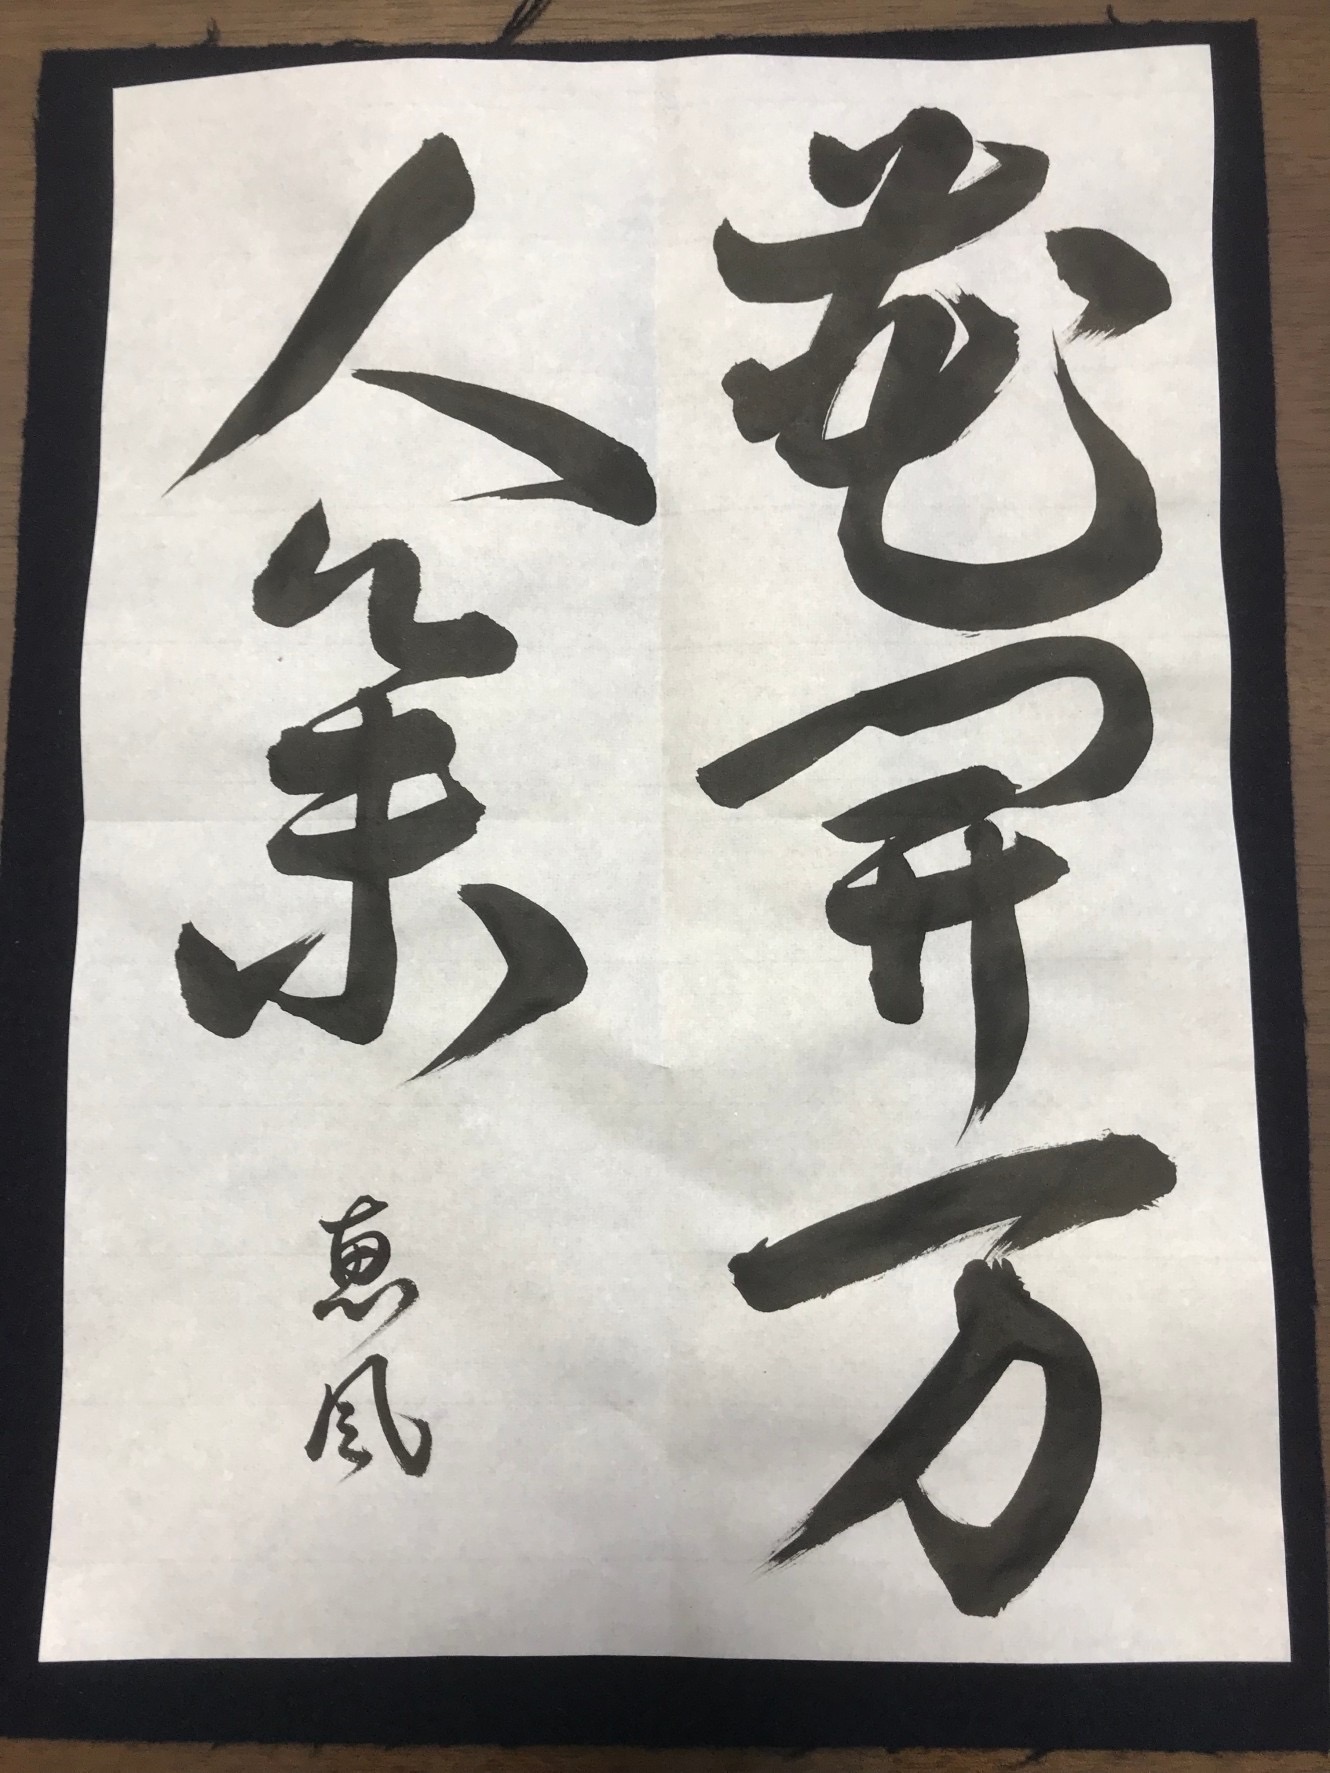 花開万
人集
恵風